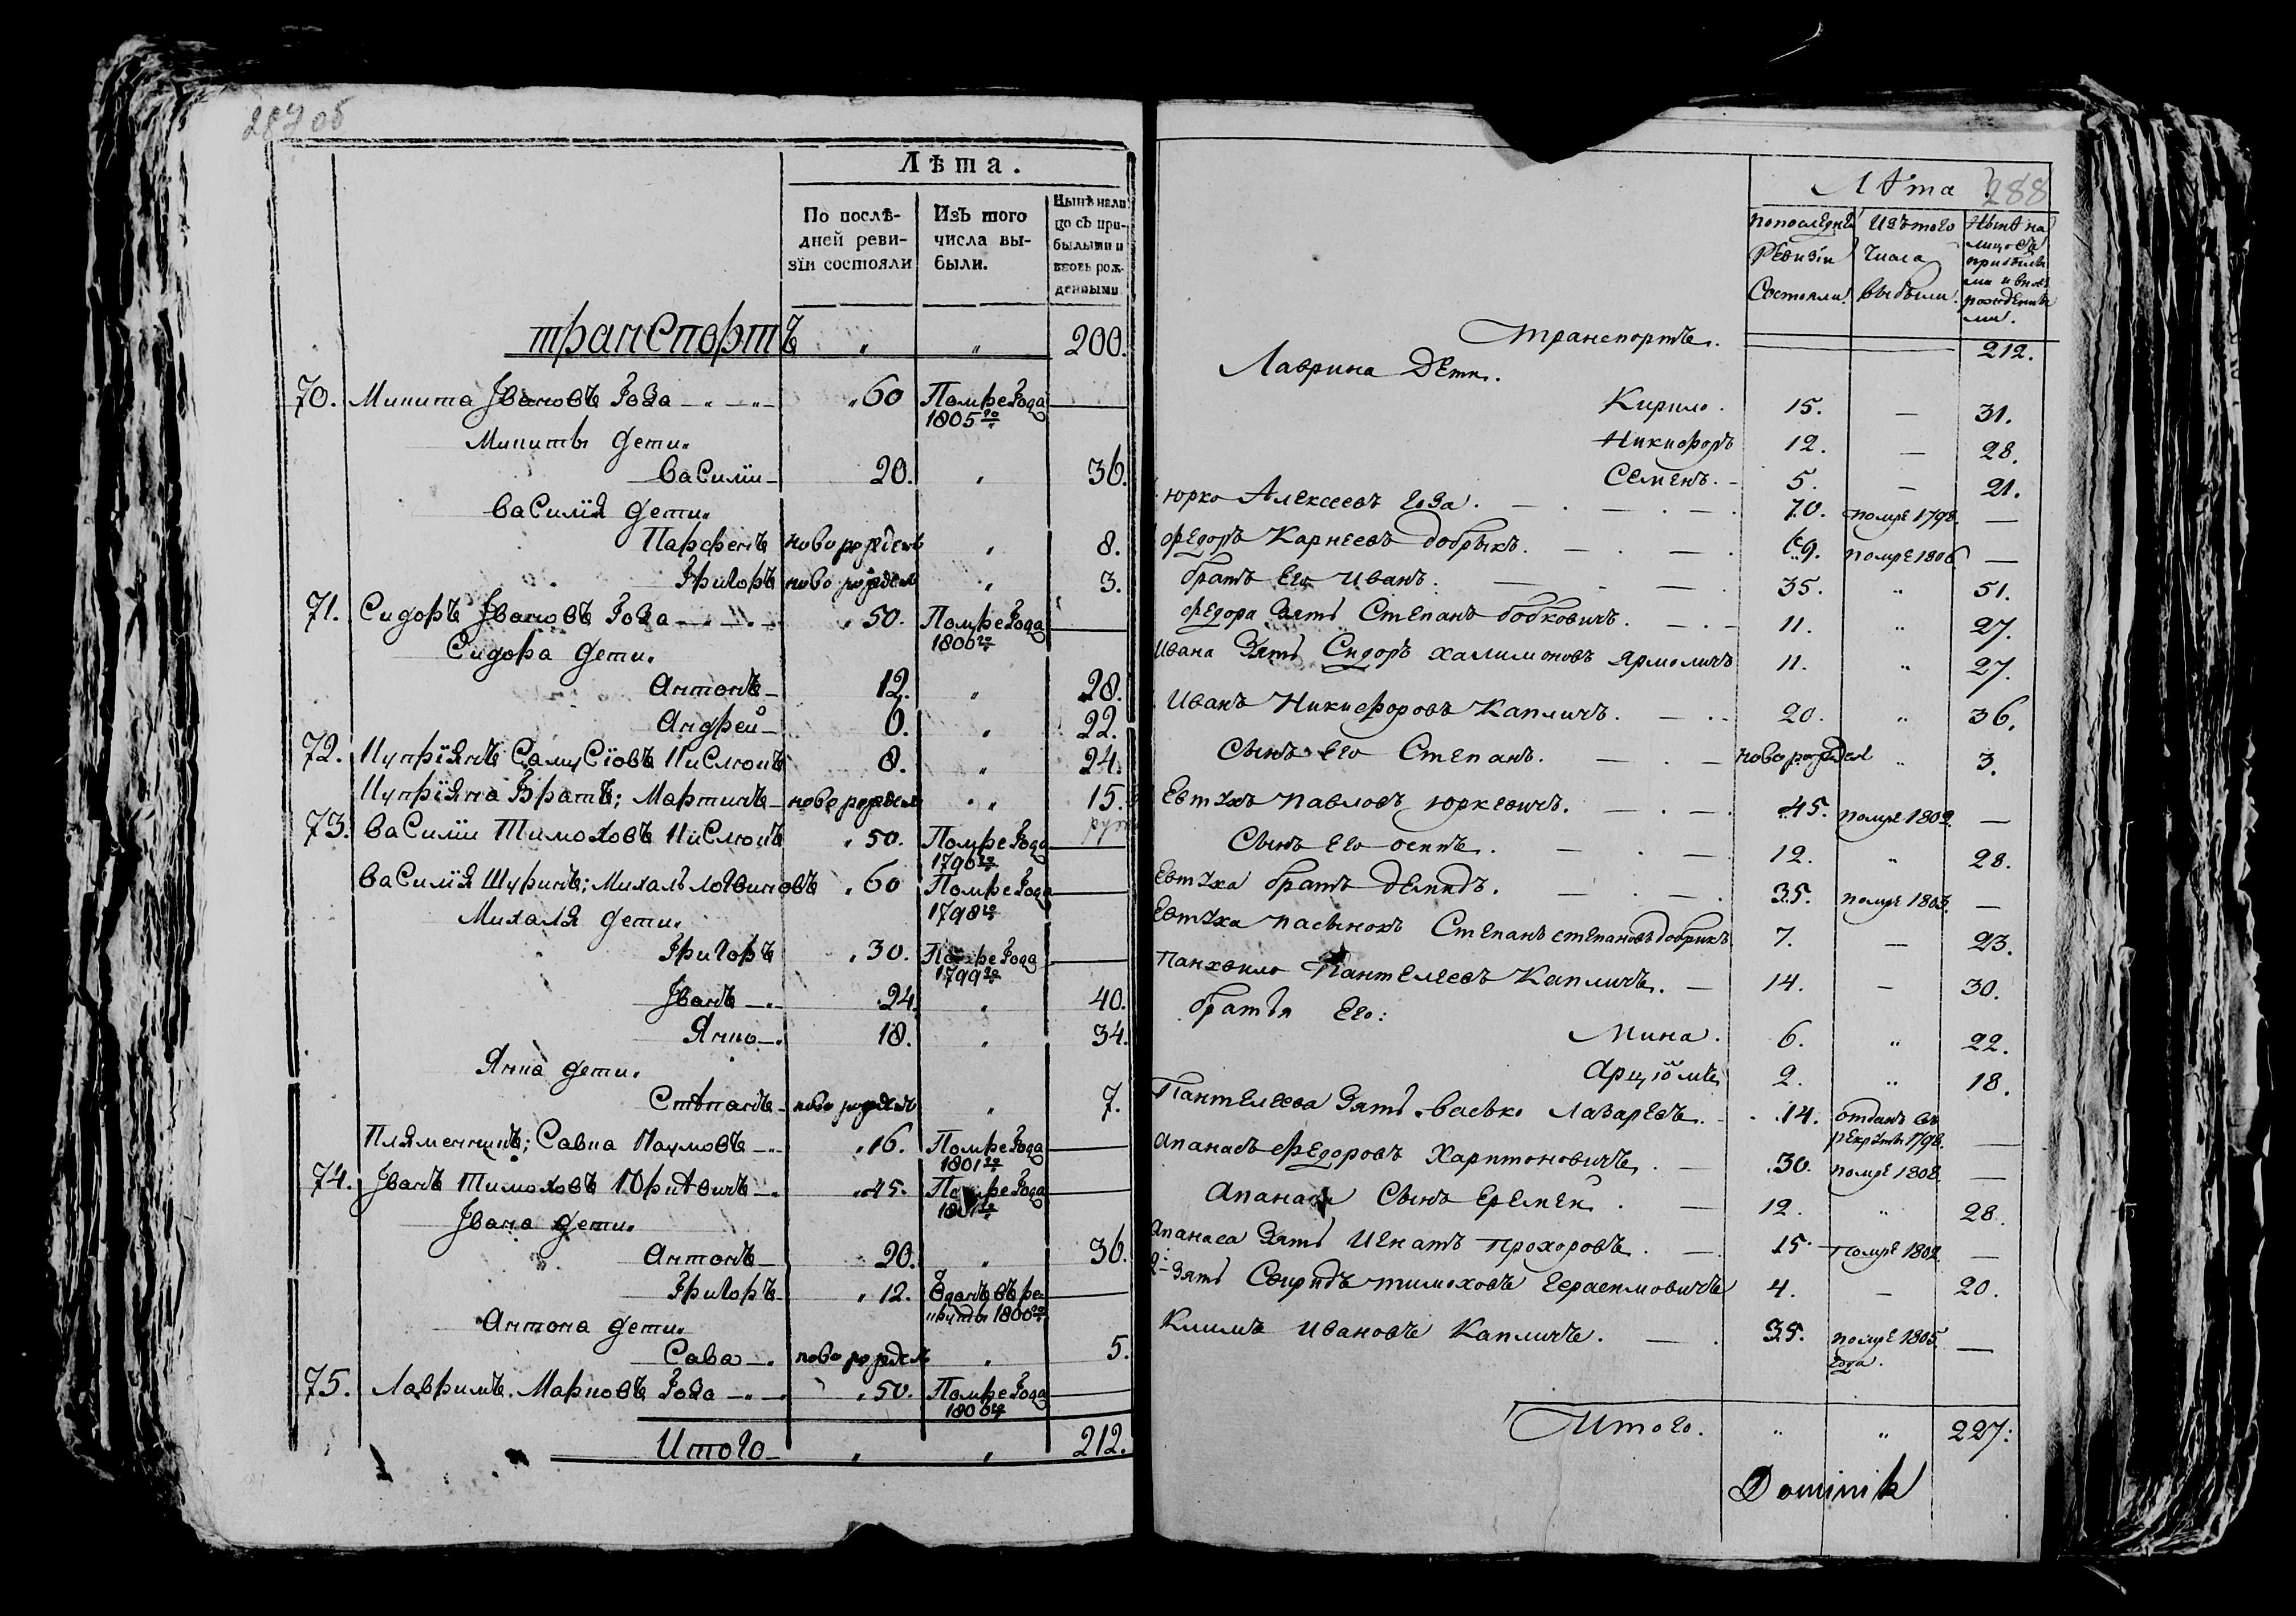 287 об
Лѣта.
По послѣ-
дней реви-
зіи состояли
Изъ того
числа вы-
были.
Нынѣ нали
цо съ при-
былыми и
вновь рож-
денными
транспортъ " " 200.
70. Микита Ивановъ Гоза 60 Помре Года
1805го
Микиты дети.
Василіи 20. " 36.
Василія дети.
Парфенъ новорожден " 8.
Григоръ новорожден " 3.
71. Сидоръ Ивановъ Гоза 50. Помре Года
1806го
Сидора дети.
Антонъ 12. " 28.
Андрей 6. " 22.
72. Купріянъ Самусіовъ Кислюкъ 8. " 24.
Купріяна Братъ; Мартинъ новорожден " 15.
73. Василіи Тимоховъ Кислюкъ 50. Помре Года
1796го
Василія Шуринъ; Михалъ Логвиновъ 60 Помре Года
1798го
Михаля дети.
Григоръ 30. Помре Года
1799го
Иванъ 24. " 40.
Янко 18. " 34.
Янка дети.
Стѣпанъ новорожден " 7.
Пляменникъ; Савка Наумовъ 16. Помре Года
1801го
74. Иванъ Тимоховъ 45. Помре Года
1801го
Ивана дети.
Антонъ 20. " 36.
Григоръ 12. Одданъ въ ре-
круты 1800го
Антона дети.
Сава новорожден " 5.
75. Лавринъ Марковъ Гоза 50. Помре Года
1806го
Итого " " 212.
Лѣта 288
По последней
Ревизіи
Состояли.
Изъ того
числа
выбыли.
Нынѣ на
лицо съ
прибылы
ми и вновь
рожденны
ми.
транспортъ. 212.
Лаврина Дети.
Кирило. 15. — 31.
Никифоръ 12. — 28.
Семенъ. 5. — 21.
Юрко Алексеевъ Гоза. 70. помре 1798. —
Федоръ Карнеевъ добрыкъ. 69. помре 1806 —
братъ Его Иванъ. 35. " 51.
Федора Зять Степанъ бобковичъ. 11. " 27.
Ивана Зять Сидоръ Халимоновъ Ярмоличъ 11. " 27.
Иванъ Никифоровъ Капличъ. 20. " 36.
Сынъ Его Степанъ. новорожден " 3.
Евтухъ Павловъ Юркевичъ. 45. помре 1802. —
Сынъ Его осипъ. 12. " 28.
Евтуха братъ демидъ. 35. помре 1803. —
Евтуха пасынокъ Степанъ степановъ добрикъ 7. — 23.
Панхвило Пантелеевъ Капличъ. 14. — 30.
братья Его:
Мина. 6. " 22.
Арціомъ 2. " 18.
Пантелеева Зять васько Лазаревъ. 14. отданъ въ
рекруты 1798. —
Апанасъ Федоровъ Харитоновичъ. 30. помре 1808. —
Апанаса Сынъ Еремей. 12. " 28.
Апанаса Зять Игнатъ Прохоровъ. 15. помре 1802 —
2й Зять Свиридъ тимоховъ Герасимовичъ 4. — 20.
Климъ Ивановъ Капличъ. 35. помре 1805.
Года. —
Итого. " " 227:
Dominik